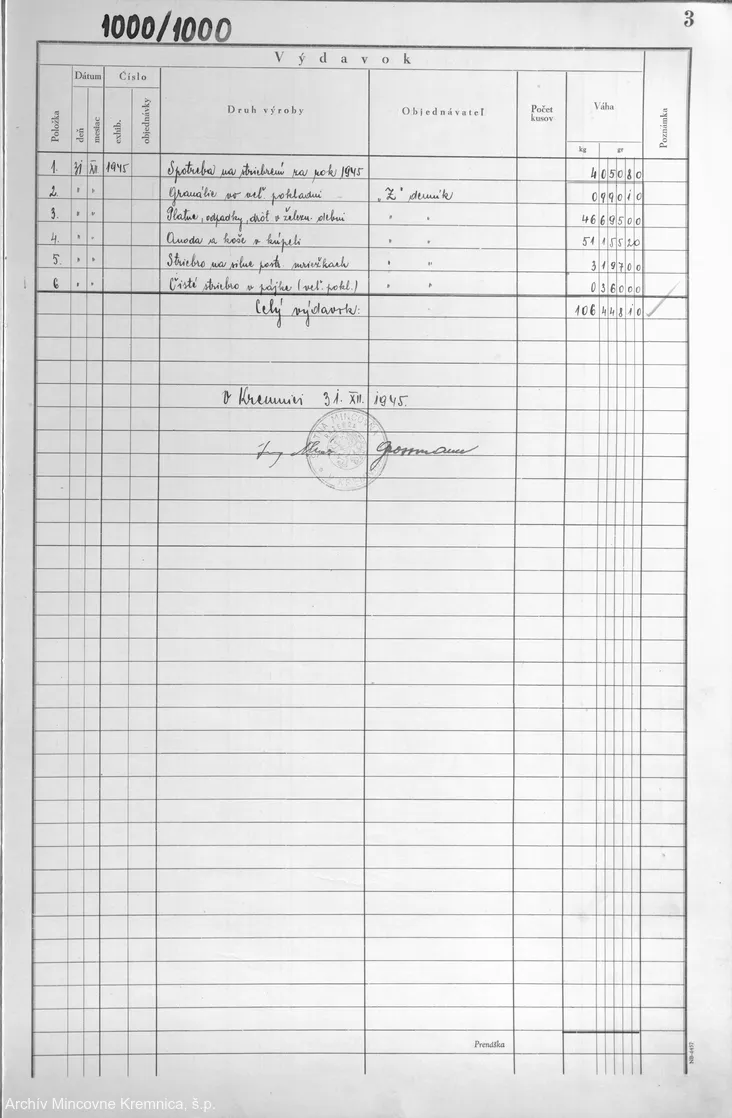 1000/1000
3
Výdavok
Položka
Dátum
deň
mesiac
Číslo
exhib.
objednávky
Druh výroby
Objednávateľ
Počet kusov
Váha
kg gr
Poznámka
1. 31 XII 1945 Spotreba na striebrení za rok 1945 4 05080
2. " " Granálie vo veľ. pokladni „Z" denník 0 99010
3. " " Platne, odpadky, drôt v železn. debni " " 46 69500
4. " " Anoda a koše v kúpeli " " 51 15520
5. " " Striebro na silne postr. mriežkach " " 3 19700
6 " " Čisté striebro v pájke (veľ. pokl.) " " 0 36000
Celý výdavok: 106 44810
V Kremnici 31. XII. 1945.
Ing
Grossmann
Prenáška
Archív Mincovne Kremnica, š.p.